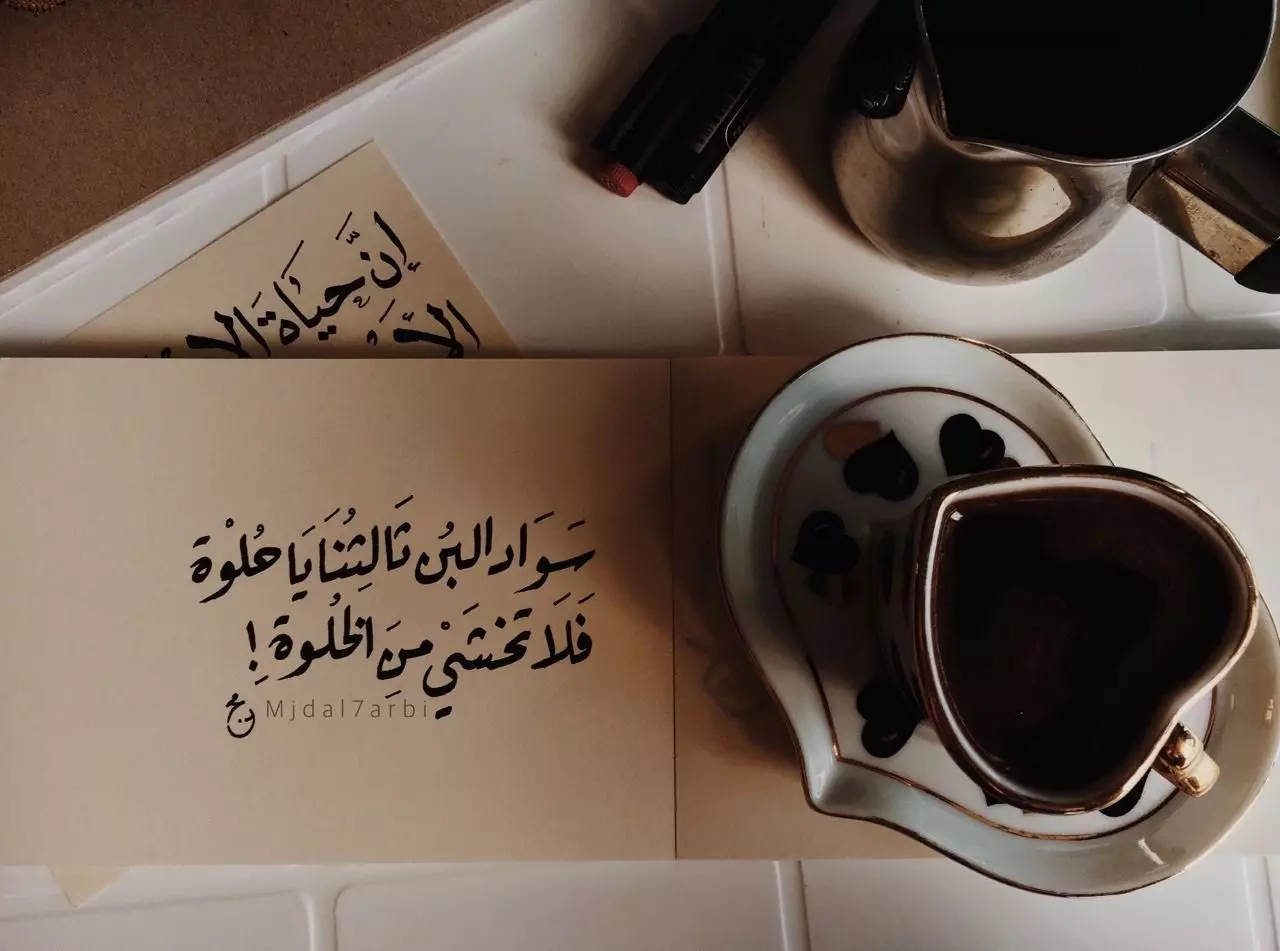 إنَّ حَيَاةَ
سَوَاد البُن ثَالِثُنَا يَا حُلْوَة
فَلَا تَخْشَيْ مِنَ الخُلْوَةِ !
Mjdal7arbi